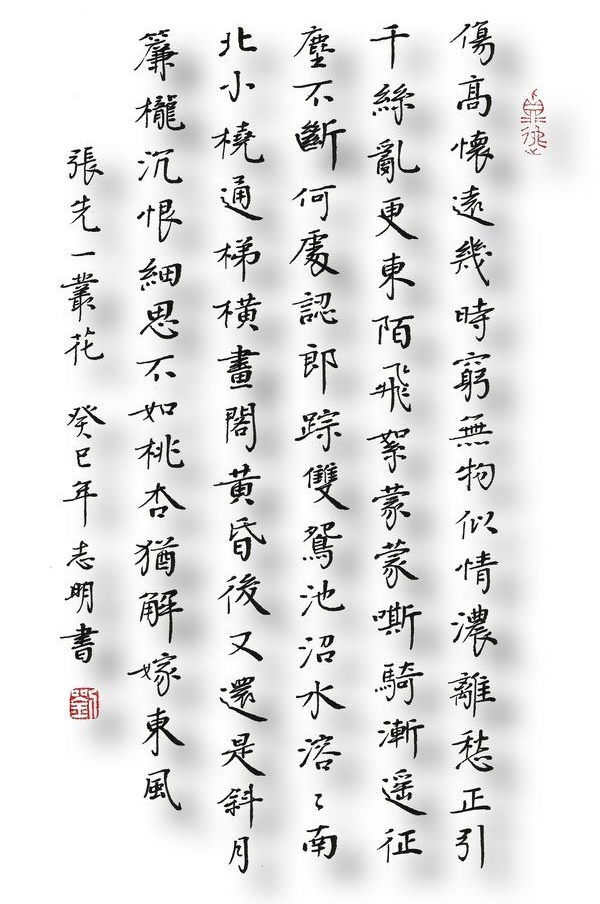 傷高懷遠幾時窮無物似情濃離愁正引
千絲亂更東陌飛絮蒙蒙嘶騎漸遥征
塵不斷何處認郎踪雙鴛池沼水溶〻南
北小橈通梯橫畫閣黃昏後又還是斜月
簾櫳沉恨細思不如桃杏猶解嫁東風
張先一叢花 癸巳年 志明書
劉